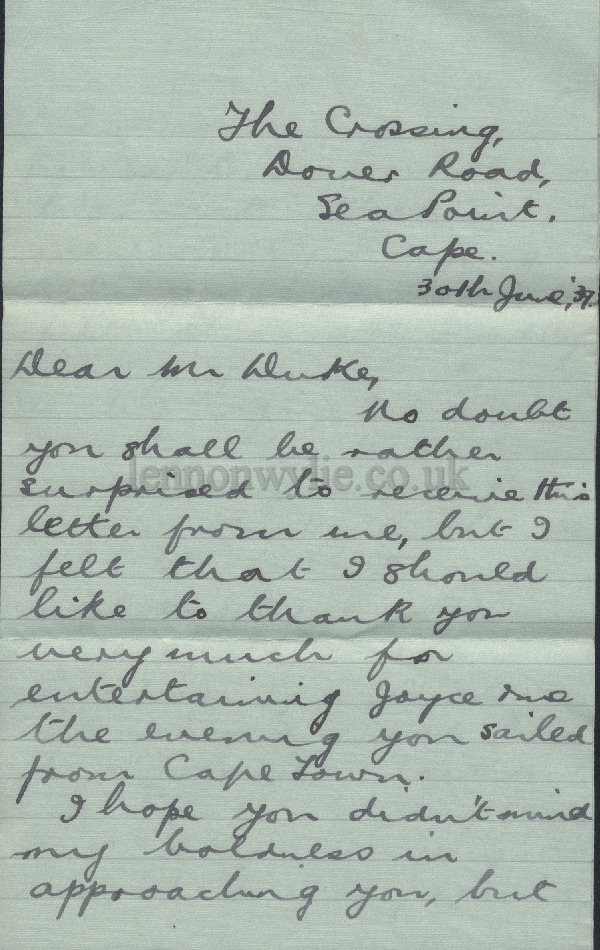 The Crossing,
Dover Road,
Sea Point.
Cape.
30th June, '39.
Dear Mr Duke,
No doubt
you shall be rather
lennonwylie.co.uk
surprised to receive this
letter from me, but I
felt that I should
like to thank you
very much for
entertaining Joyce & me
the evening you sailed
from Cape Town.
I hope you didn't mind
my boldness in
approaching you, but